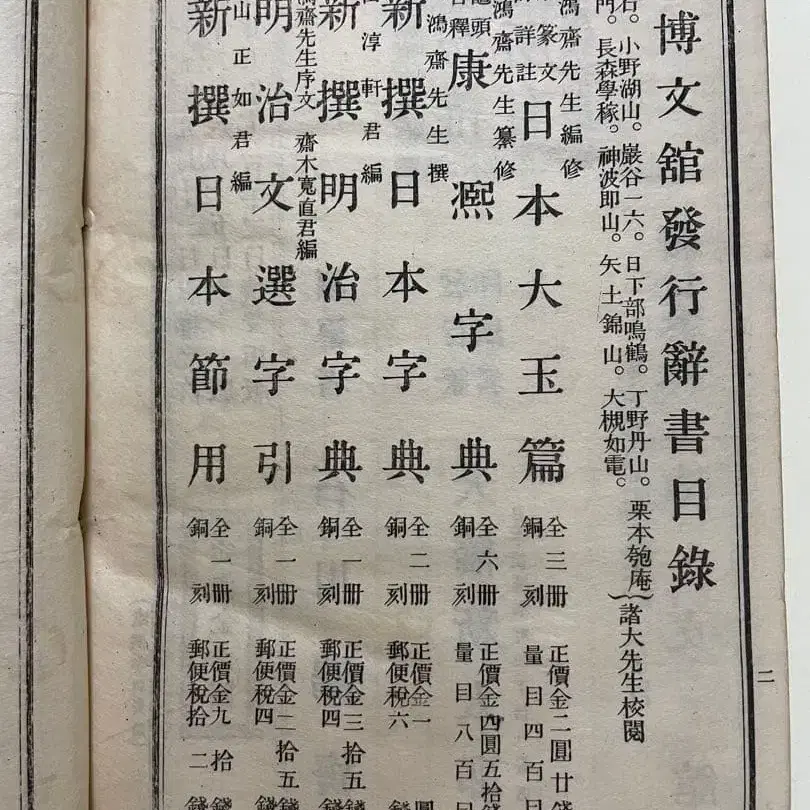 博文舘發行辭書目錄
石。小野湖山。巖谷一六。日下部鳴鶴。丁野丹山。栗本匏庵
門。長森學稼。神波即山。矢土錦山。大槻如電。
諸大先生校閱
鴻齋先生編修
篆文
詳註
日本大玉篇
全三冊
銅刻
正價金二圓廿錢
量目四百目
鴻齋先生纂修
鼇頭
音釋
康熙字典
全六冊
銅刻
正價金四圓五拾錢
量目八百目
鴻齋先生撰
新撰日本字典
全二冊
銅刻
正價金一圓
郵便税六錢
淳軒君編
新撰明治字典
全一冊
銅刻
正價金三拾五錢
郵便税四錢
齋先生序文 齋木寬直君編
明治文選字引
全一冊
銅刻
正價金二拾五錢
郵便税四錢
山正如君編
新撰日本節用
全一冊
銅刻
正價金九拾錢
郵便税拾二錢
二